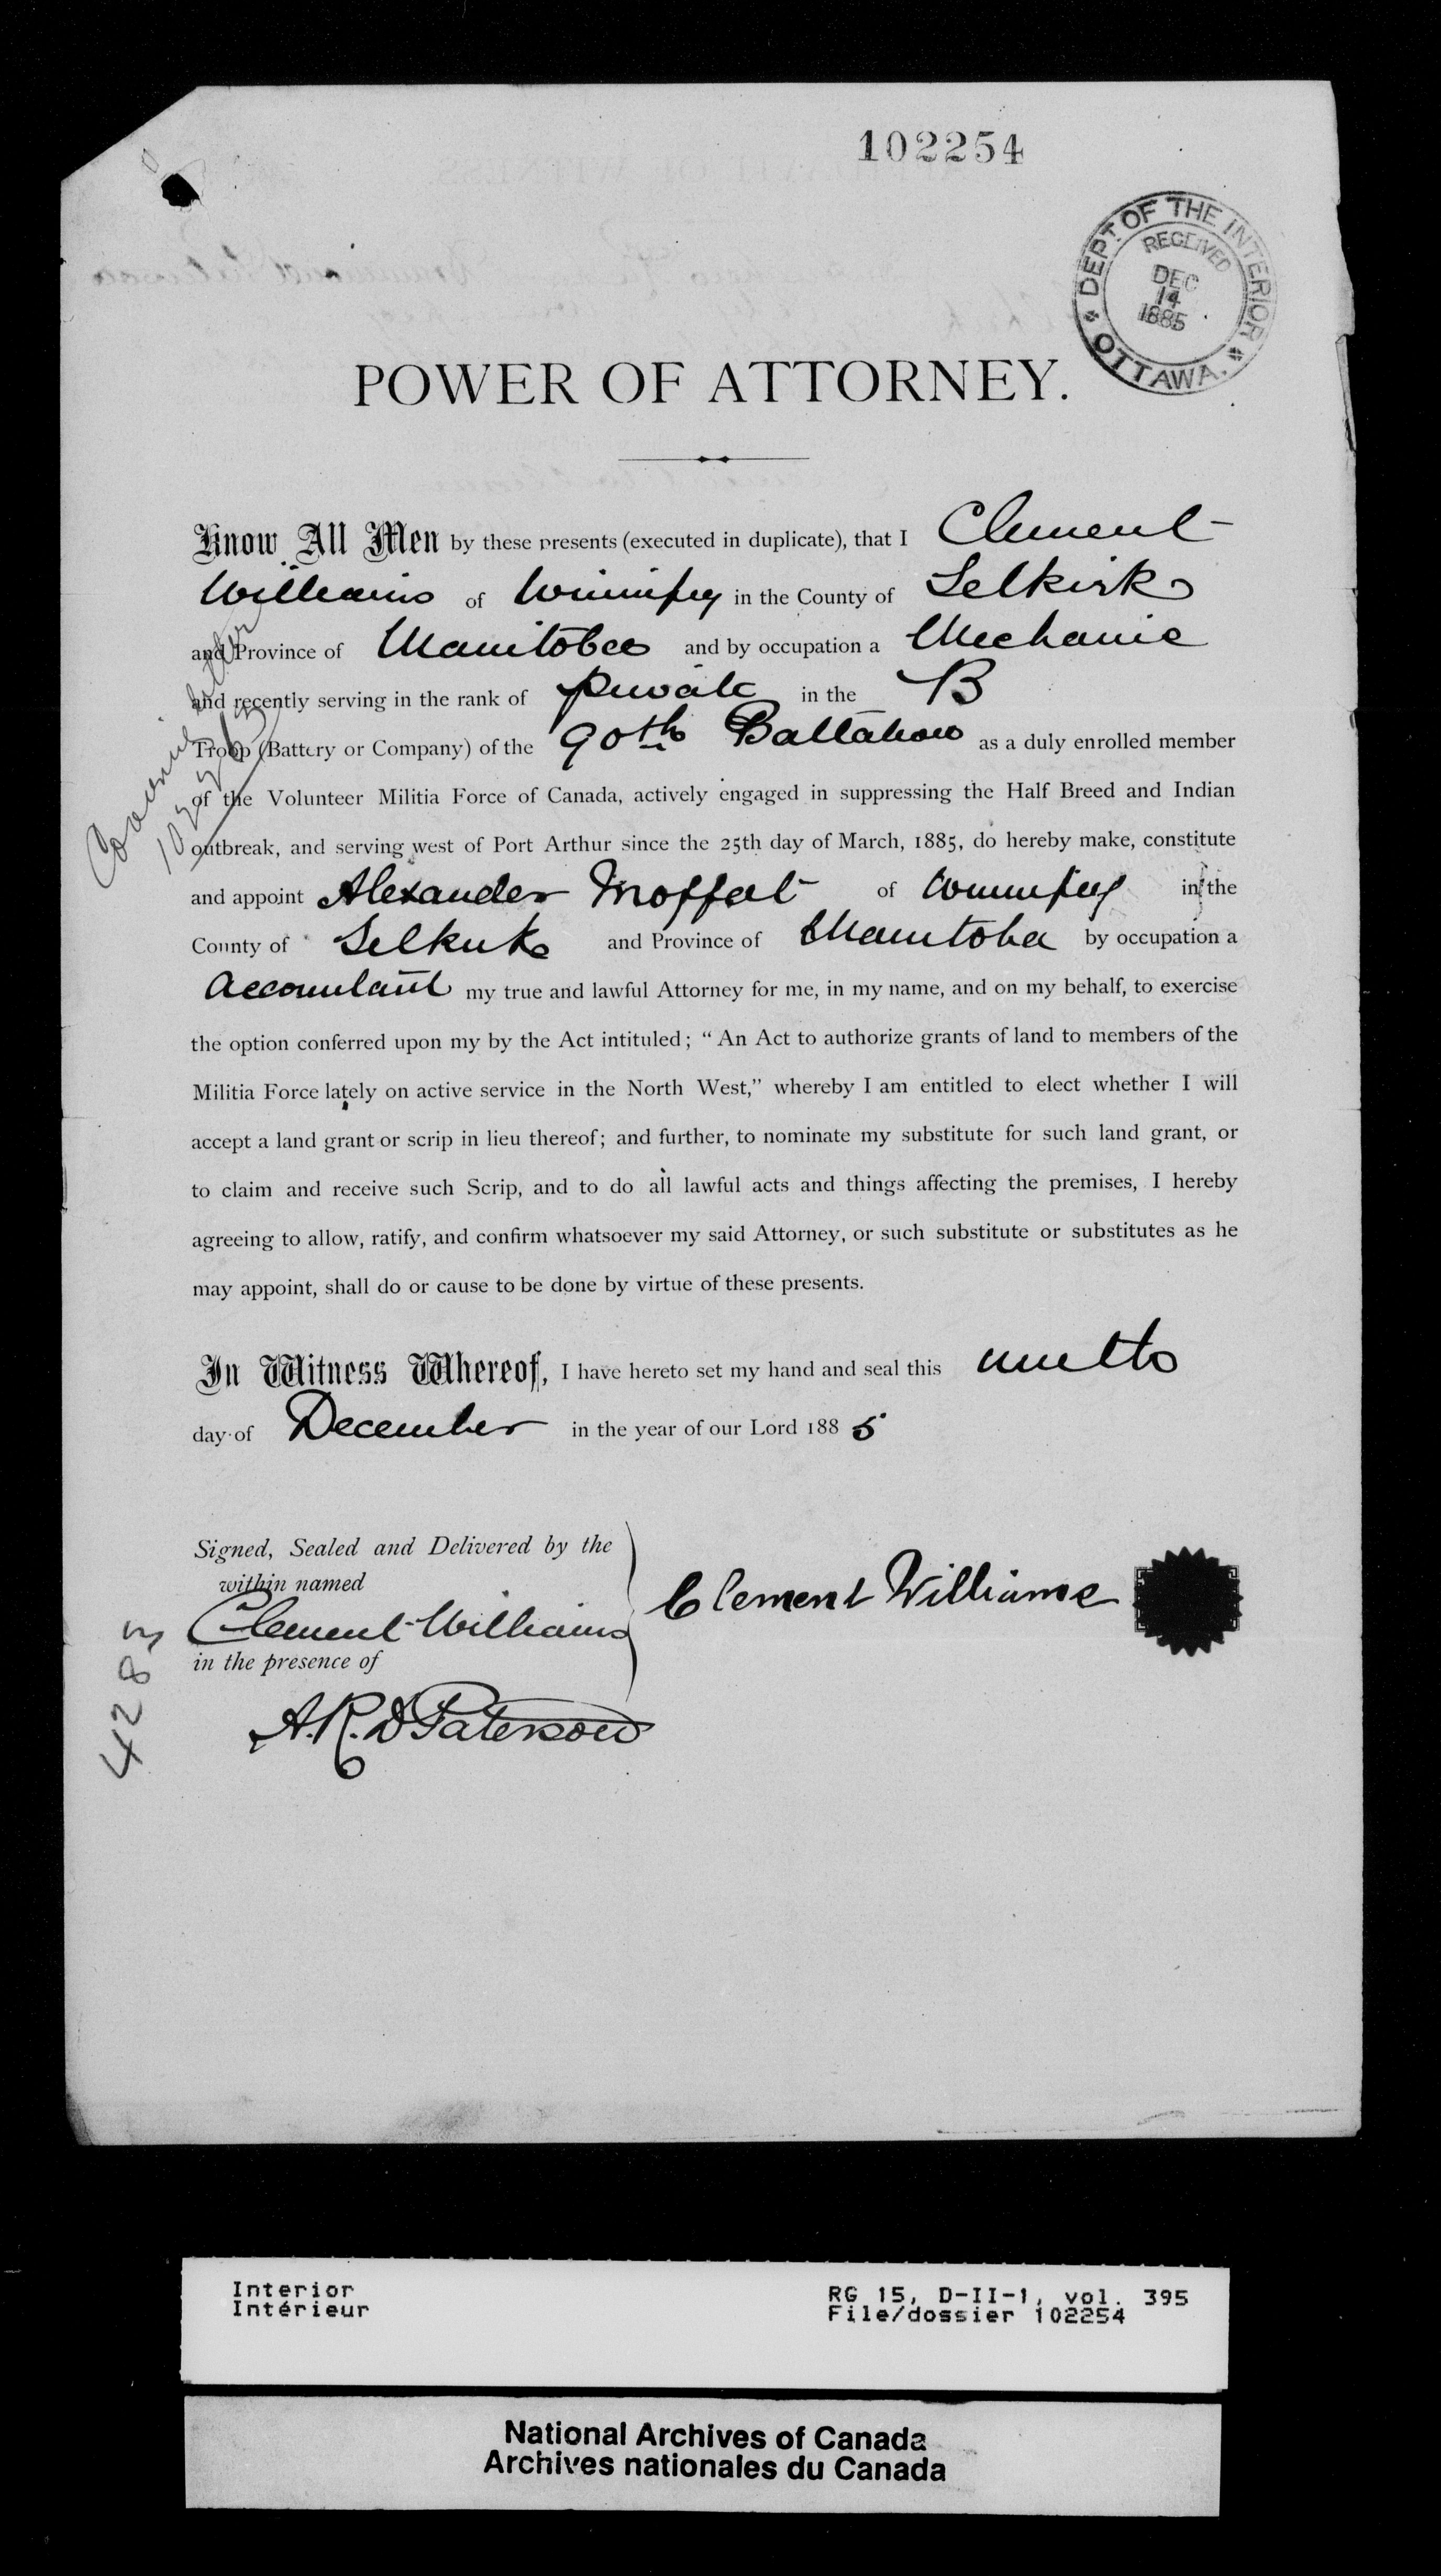 102254
DEPT. OF THE INTERIOR
RECEIVED
DEC
14
1885
OTTAWA.
POWER OF ATTORNEY.
Know All Men by these presents (executed in duplicate), that I Clement
Williams of Winnipeg in the County of Selkirk
and Province of Manitoba and by occupation a Mechanic
and recently serving in the rank of private in the B
Troop (Battery or Company) of the 90th Battalion as a duly enrolled member
of the Volunteer Militia Force of Canada, actively engaged in suppressing the Half Breed and Indian
outbreak, and serving west of Port Arthur since the 25th day of March, 1885, do hereby make, constitute
and appoint Alexander Moffat of Winnipeg in the
County of Selkirk and Province of Manitoba by occupation a
Accountant my true and lawful Attorney for me, in my name, and on my behalf, to exercise
the option conferred upon my by the Act intituled; "An Act to authorize grants of land to members of the
Militia Force lately on active service in the North West," whereby I am entitled to elect whether I will
accept a land grant or scrip in lieu thereof; and further, to nominate my substitute for such land grant, or
to claim and receive such Scrip, and to do all lawful acts and things affecting the premises, I hereby
agreeing to allow, ratify, and confirm whatsoever my said Attorney, or such substitute or substitutes as he
may appoint, shall do or cause to be done by virtue of these presents.
In Witness Whereof, I have hereto set my hand and seal this ninth
day of December in the year of our Lord 1885
Signed, Sealed and Delivered by the
within named
Clement Williams
in the presence of
A.R.D Paterson
Clement Williams
Covering letter
4283
Interior
Intérieur
RG 15, D-II-1, vol. 395
File/dossier 102254
National Archives of Canada
Archives nationales du Canada